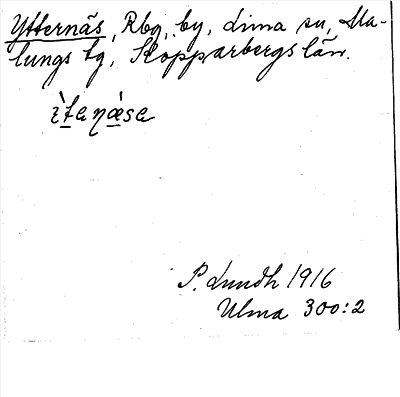 Ytternäs, Rbg, by, Lima sn, Ma-
lungs tg, Kopparbergs län.
ìtaŋæ̀sa
P. Lundh 1916
Ulma 300:2